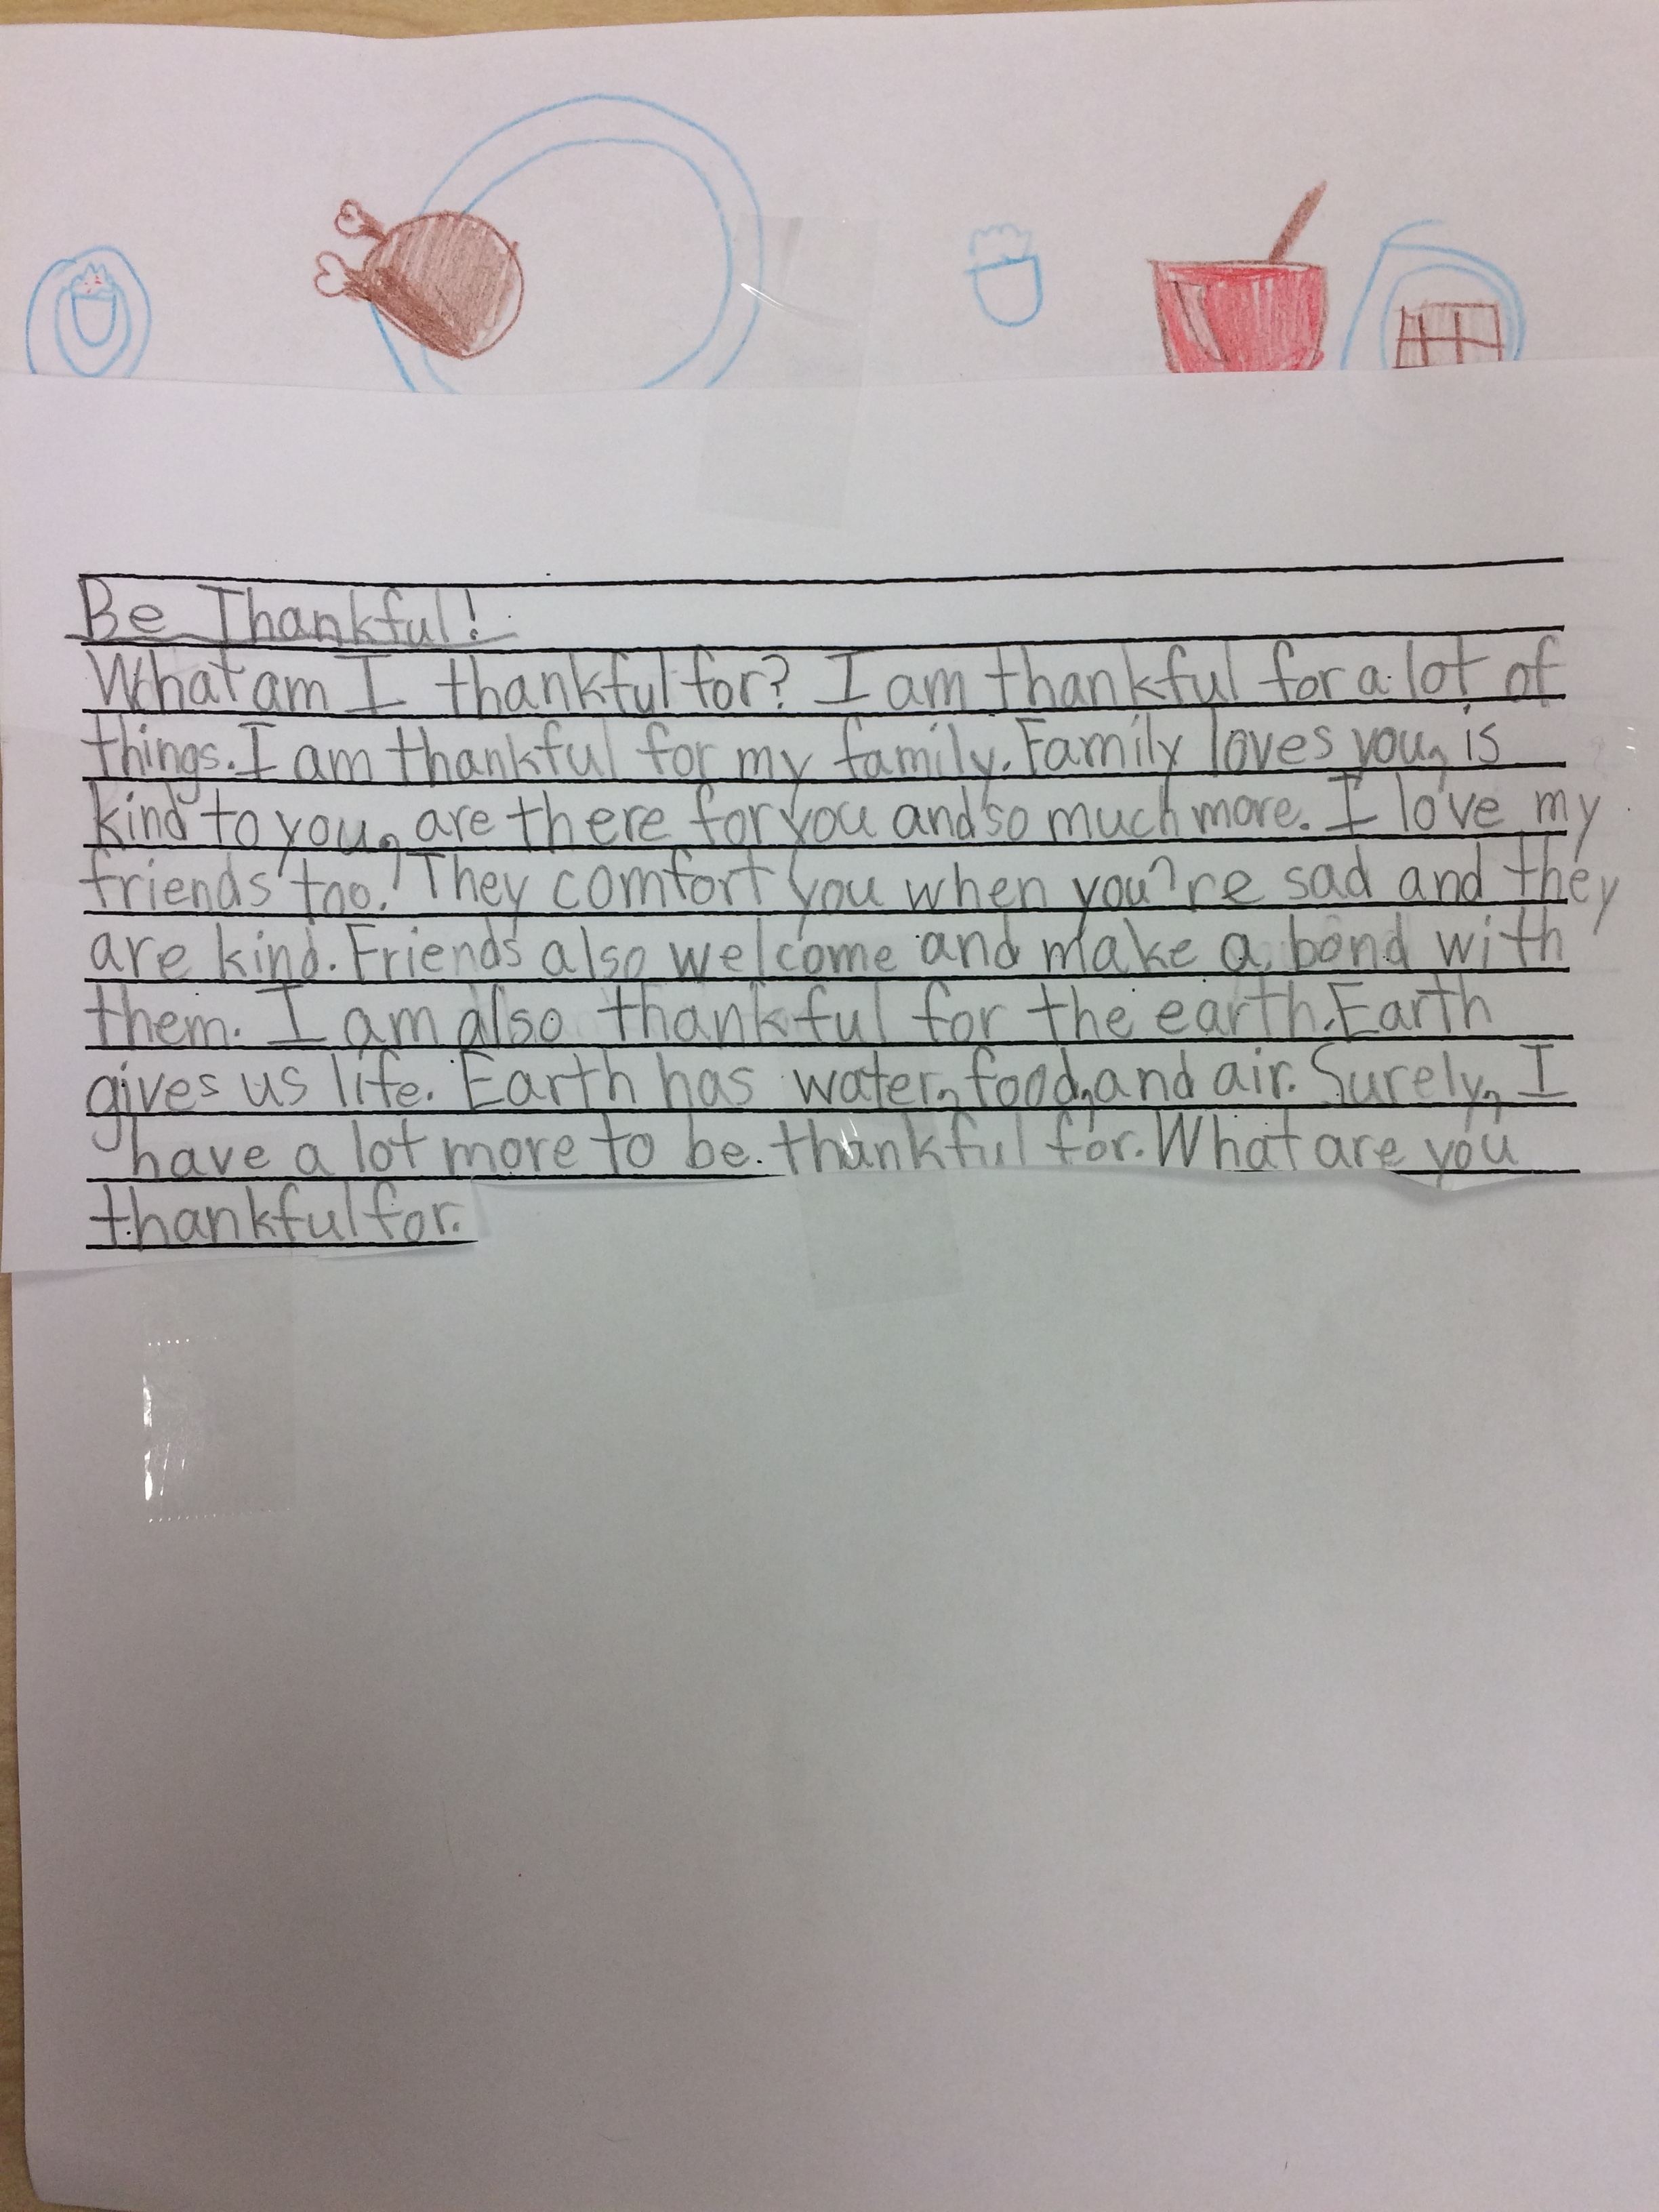 Be Thankful!
What am I thankful for? I am thankful for a lot of
things. I am thankful for my family. Family loves you, is
kind to you, are there for you and so much more. I love my
friends too! They comfort you when you're sad and they
are kind. Friends also welcome and make a bond with
them. I am also thankful for the earth. Earth
gives us life. Earth has water, food, and air. Surely, I
have a lot more to be thankful for. What are you
thankful for.